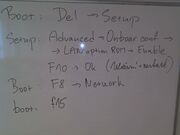 Boot: Del → Setup
Setup: Advanced → Onboar conf →
→ LAN option ROM → Enable
F10 → Ok
Boot F8 → Network
boot: F15